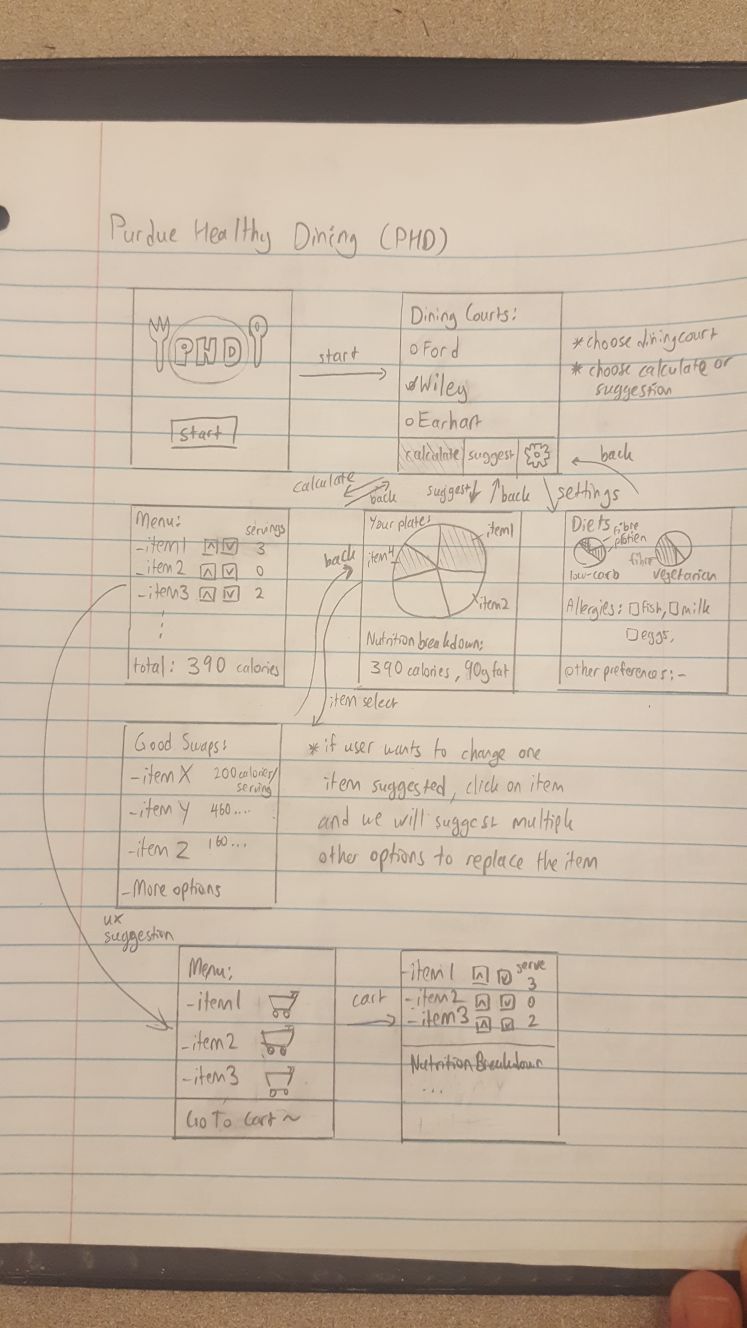 Purdue Healthy Dining (PHD)
PHD
Start
start
Dining Courts:
Ford
Wiley
Earhart
calculate suggest
* choose dining court
* choose calculate or
suggestion
calculate
back
suggest
back
settings
back
Menu:
servings
-item1 3
-item2 0
-item3 2
total: 390 calories
Your plate:
item1
item4
item2
Nutrition breakdown:
390 calories, 90g fat
Diets
fibre
protien
low-carb
fibre
vegetarian
Allergies: fish, milk
eggs,
other preferences: -
back
item select
Good Swaps:
-item X 200 calories/
serving
-item Y 460....
-item Z 160...
-More options
* if user wants to change one
item suggested, click on item
and we will suggest multiple
other options to replace the item
ux
suggestion
Menu:
-item1
-item2
-item3
Go To Cart ~
cart
serve
-item1 3
-item2 0
-item3 2
Nutrition Breakdown
...